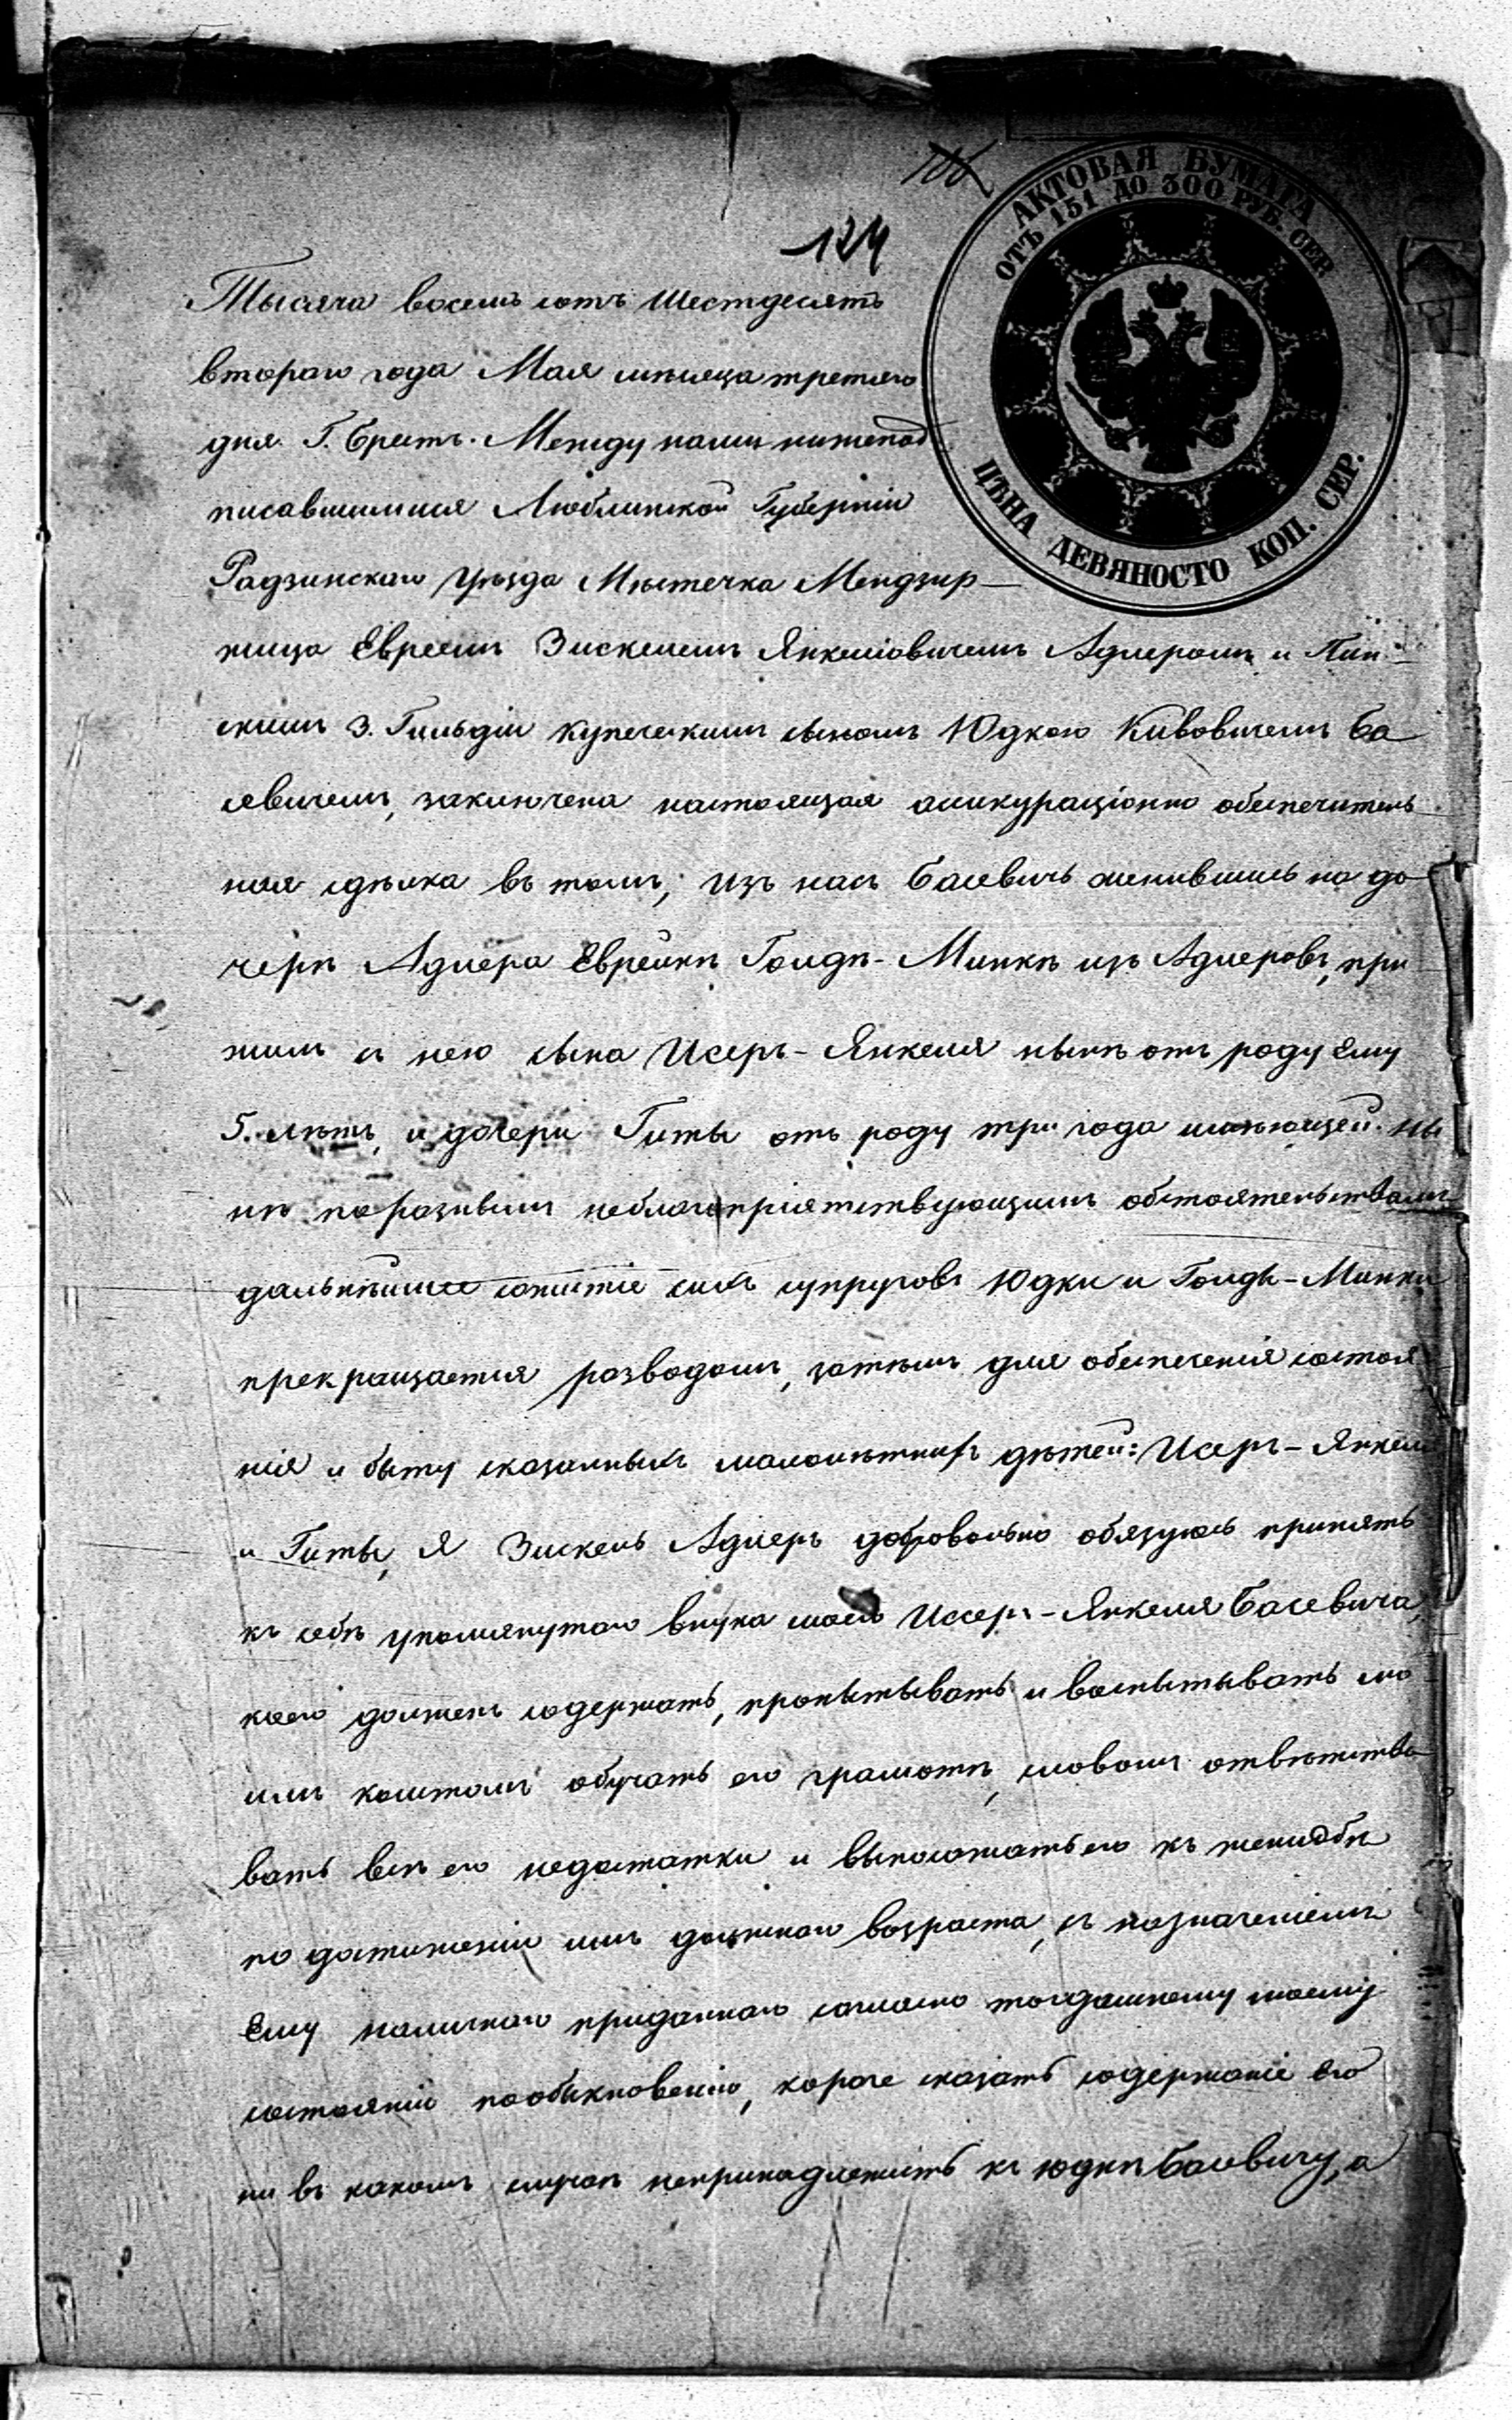 124
АКТОВАЯ БУМАГА
ОТЪ 151 ДО 300 РУБ. СЕР
ЦѢНА ДЕВЯНОСТО КОП. СЕР.
Тысяча восемь сотъ шестдесятъ
втораго года Мая мѣсяца третьяго
дня. Г. Брестъ. Между нами нижепод
писавшимися Люблинской Губерніи
Радзинскаго Уѣзда Мѣстечка Мендзир-
жица Евреемъ Зискелемъ Янкелiовичемъ Адлеромъ и Пин-
скимъ 3. Гильдіи купеческимъ сыномъ Юдкою Кивовичемъ Ба
севичемъ, заключена настоящая ассикураціонно обеспечитель
ная сдѣлка въ томъ; изъ насъ Басевичъ женившись на до
чери Адлера Еврейкѣ Голдѣ-Минкѣ изъ Адлеровъ, при
жилъ съ нею сына Исеръ-Янкеля нынѣ отъ роду ему
5. лѣтъ, и дочери Гиты отъ роду три года имѣющей. ны
нѣ по разнымъ неблагопріятствующимъ обстоятельствамъ
дальнѣйшее сожитіе сихъ супруговъ Юдки и Голды-Минки
прекращается разводомъ, затѣмъ для обеспеченія состоя
нія и быту сказанныхъ малолѣтнихъ дѣтей: Исеръ-Янкеля
и Гиты, я Зискель Адлеръ добровольно обязуюсь принять
къ себѣ упомянутаго внука моего Иссеръ-Янкеля Басевича,
коего долженъ содержать, пропытывать и воспытывать мо-
имъ коштомъ обучать его грамотѣ, словомъ отвѣтство
вать всѣ его недостатки и выпосажать его къ женидбѣ
по достиженіи имъ должнаго возраста, съ назначеніемъ
Ему наличнаго приданнаго согласно тогдашнему моему
состоянію пообыкновенію, короче сказать содержаніе его
ни въ какомъ случаѣ непринадлежитъ къ Юдкѣ Басевичу, а